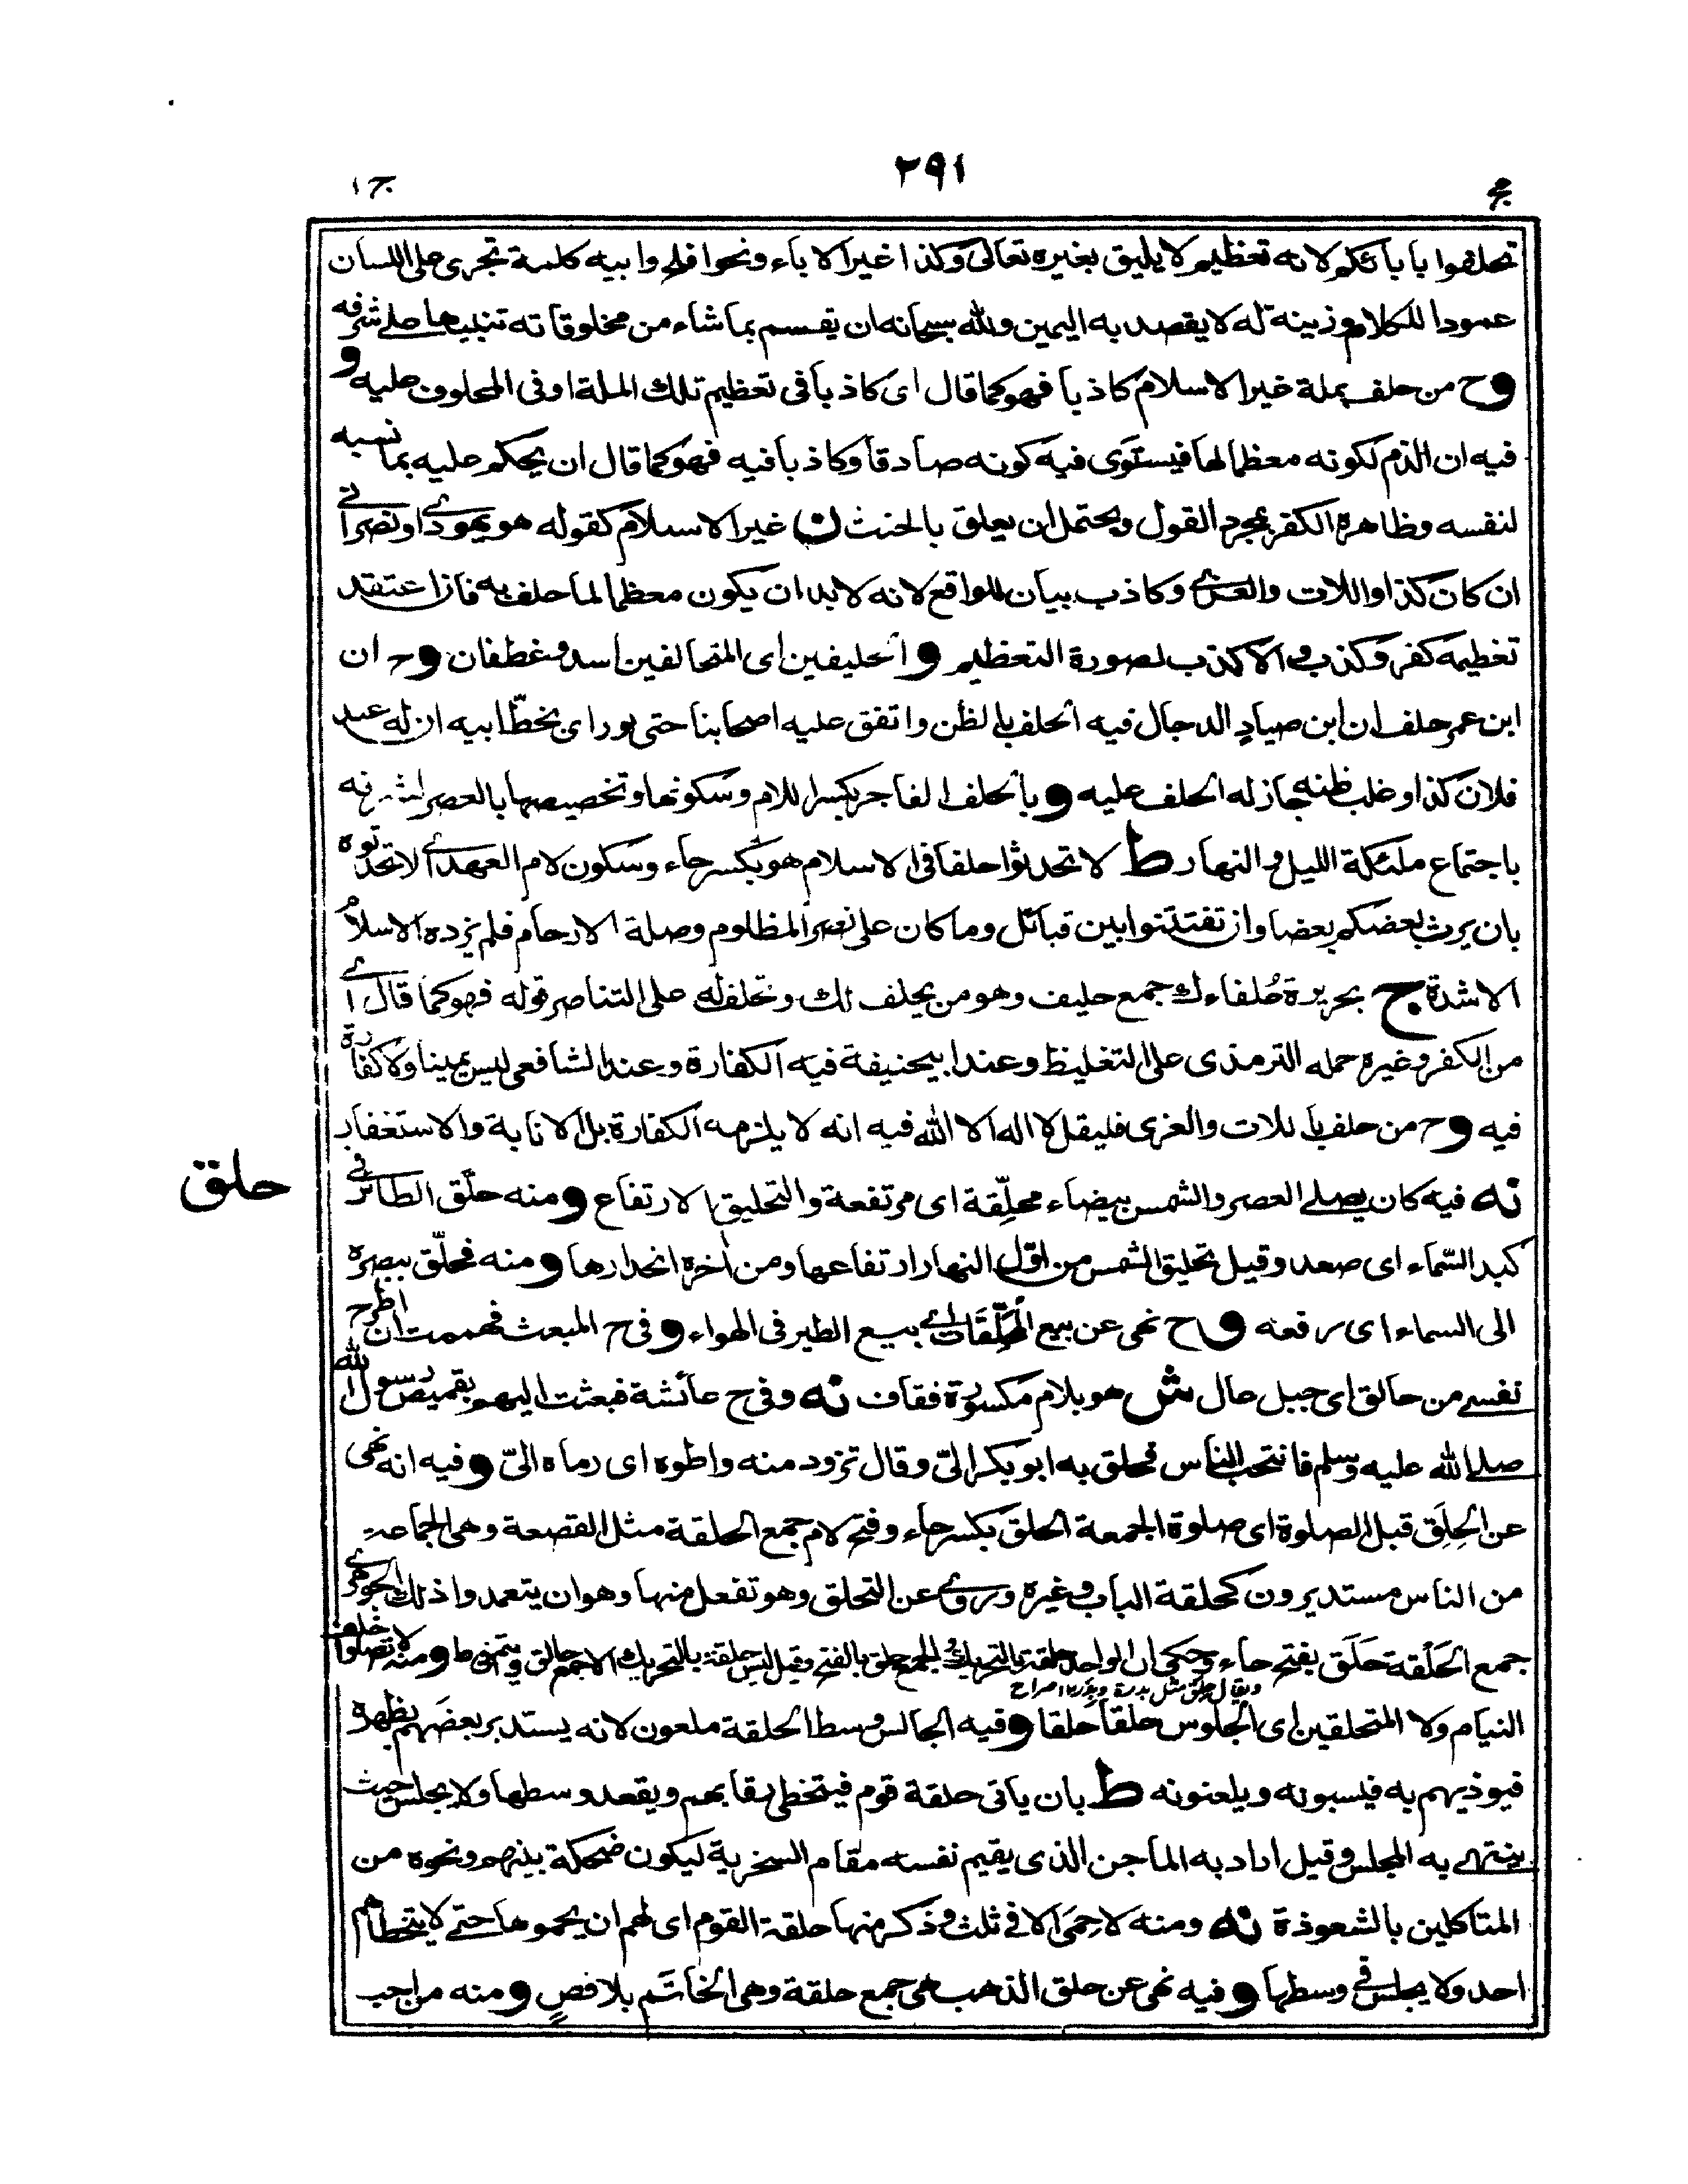 ج
٢٩١
ج ١
تحلفوا بابائكم لانه تعظيم لا يليق بغيره تعالى وكذا غير الاباء ونحو افلح وابيه كلمة تجرى على اللسان
عمودا للكلام وزينة له لا يقصد به اليمين ولله سبحانه ان يقسم بما شاء من مخلوقاته تنبيها على شرفه
وح من حلف بملة غير الاسلام كاذبا فهو كما قال اى كاذبا فى تعظيم تلك الملة او فى المحلوف عليه و
فيه ان الذم لكونه معظما لها فيستوى فيه كونه صادقا وكاذبا فيه فهو كما قال ان يحكم عليه بما نسبه
لنفسه وظاهره الكفر بمجرد القول ويحتمل ان يعلق بالحنث ن غير الاسلام كقوله هو يهودى او نصرانى
ان كان كذا واللات والعزى وكاذب بيان للواقع لانه لا بد ان يكون معظما لما حلف به فان اعتقد
تعظيمه كفر وكذب والا كذب لصورة التعظيم و الحليفين اى المتحالفين اسد وغطفان وح ان
ابن عمر حلف ان ابن صياد الدجال فيه الحلف بالظن واتفق عليه اصحابنا حتى لو راى بخط ابيه ان له عند
فلان كذا وغلب ظنه جاز له الحلف عليه و بالحلف الفاجر بكسر اللام وسكونها وتخصيصها بالعصر لشرفه
باجتماع ملئكة الليل والنهار ط لا تحدثوا حلفا فى الاسلام هو بكسر حاء وسكون لام العهد اى لا تحدثوه
بان يرث بعضكم بعضا وان تفتتنوا بين قبائل وما كان على نصر المظلوم وصلة الارحام فلم يزده الاسلام
الا شدة ج بجريرة حُلفاءك جمع حليف وهو من يحلف لك وتحلف له على التناصر قوله فهو كما قال اى
من الكفر وغيره حمله الترمذى على التغليظ وعند ابيحنيفة فيه الكفارة وعند الشافعى ليس يمينا ولا كفارة
فيه وح من حلف باللات والعزى فليقل لا اله الا الله فيه انه لا يلزمه الكفارة بل الانابة والاستغفار
حلق
نه فيه كان يصلى العصر والشمس بيضاء محلِّقة اى مرتفعة والتحليق الارتفاع و منه حلّق الطائر فى
كبد السّماء اى صعد وقيل تحليق الشمس من اوّل النهار ارتفاعها ومن اخره انحدارها و منه فحلّق ببصره
الى السماء اى رفعه وح نهى عن بيع المحلِّقات اى بيع الطير فى الهواء و فى ح المبعث فهممت ان اطرح
نفسى من حالق اى جبل عال ش هو بلام مكسورة فقاف نه وفى ح عائشة فبعثت اليهم بقميص رسول الله
صلى الله عليه وسلم فانتحب الناس فحلق به ابو بكر الىّ وقال تزود منه واطوه اى رماه الىّ و فيه انه نهى
عن الحِلَق قبل الصلوة اى صلوة الجمعة الحلق بكسر حاء وفتح لام جمع الحلقة مثل القصعة وهى الجماعة
من الناس مستديرون كحلقة الباب وغيره وروى عن التحلق وهو تفعل منها وهو ان يتعمدوا ذلك الجوهرى
جمع الحَلْقة حَلَق بفتح حاء وحكى ان الواحد حلقة بالتحريك والجمع حلق بالفتح وقيل ليس حلقة بالتحريك الا جمع حالق ومنه لا تصلوا خلف
ويقال حلق مثل بدرة وبدر ١٢ صراح
النيام ولا المتحلقين اى الجلوس حلقا حلقا و فيه الجالس وسط الحلقة ملعون لانه يستدبر بعضهم بظهره
فيوذيهم به فيسبونه ويلعنونه ط بان ياتى حلقة قوم فيتخطى رقابهم ويقعد وسطها ولا يجلس حيث
ينتهى به المجلس وقيل اراد به الماجن الذى يقيم نفسه مقام السخرية ليكون ضحكة بينهم ونحوه من
المتاكلين بالشعوذة نه ومنه لا حِمَى الا فى ثلث وذكر منها حلقة القوم اى لهم ان يحموها حتى لا يتخطاهم
احد ولا يجلس فى وسطها و فيه نهى عن حلق الذهب هى جمع حلقة وهى الخاتَم بلا فصٍ و منه من احب